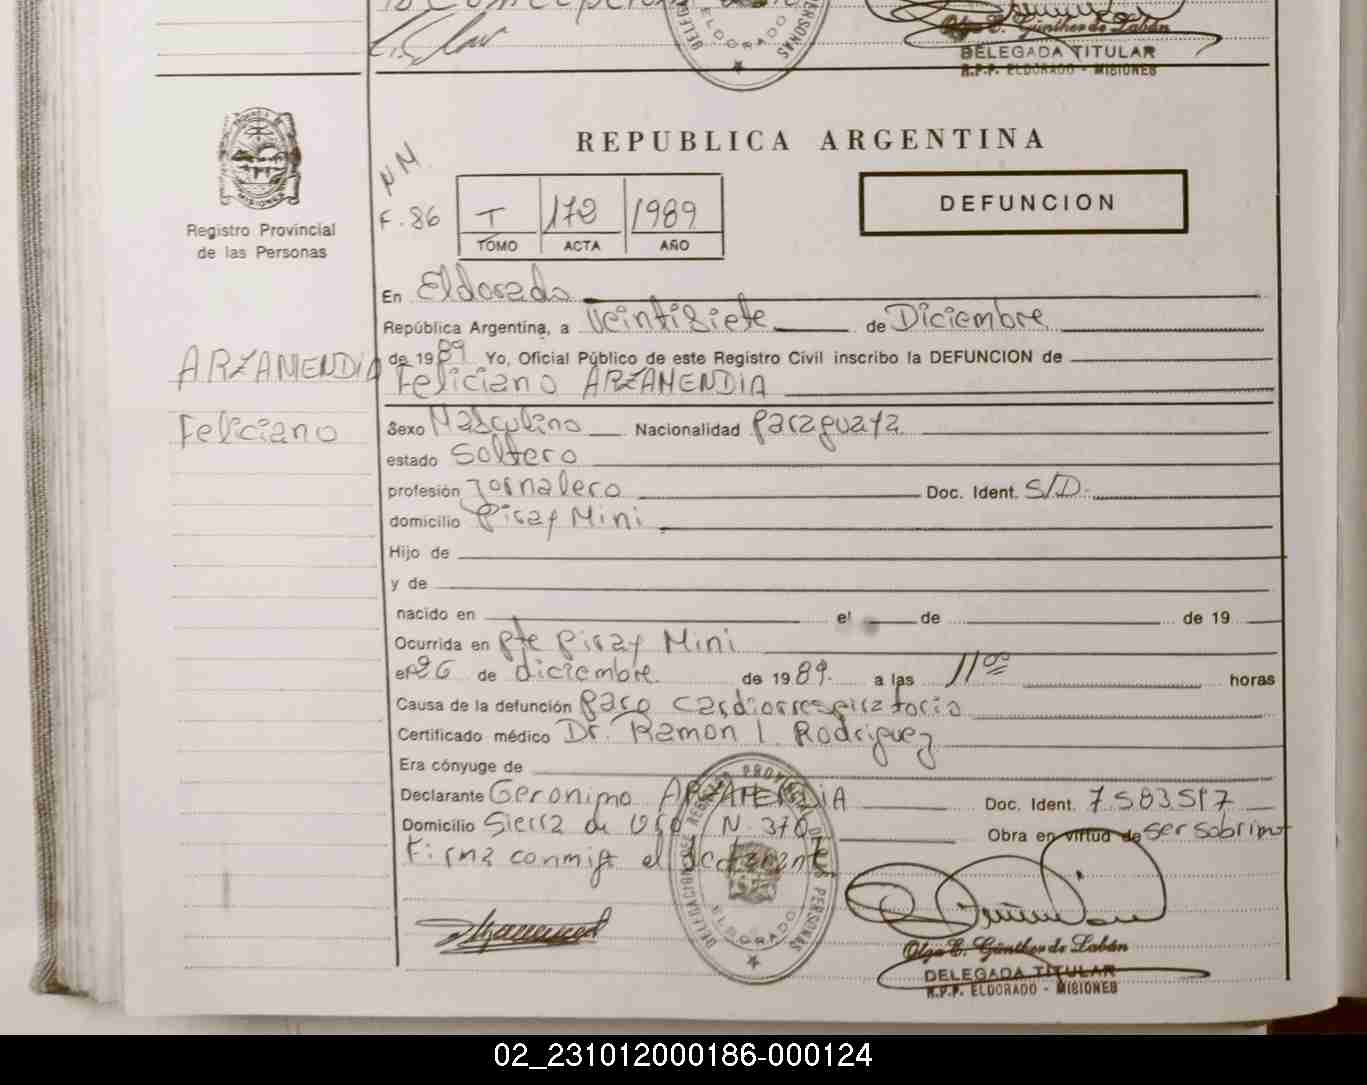 DELEG PERSONAS
ELDORADO
Olga E. Günther de Labán
DELEGADA TITULAR
R.P.P. ELDORADO - MISIONES
MISIONES
Registro Provincial
de las Personas
ARZAMENDIA
Feliciano
REPUBLICA ARGENTINA
N N.
F. 86
T 172 1989
TOMO ACTA AÑO
DEFUNCION
En Eldorado
República Argentina, a Veintisiete de Diciembre
de 1989 Yo, Oficial Público de este Registro Civil inscribo la DEFUNCION de
Feliciano ARZAMENDIA
Sexo Masculino Nacionalidad paraguaya
estado Soltero
profesión Jornalero Doc. Ident. S/D.
domicilio Piray Mini
Hijo de
y de
nacido en el de de 19
Ocurrida en Pte Piray Mini
el 26 de diciembre de 1989. a las 11 00 horas
Causa de la defunción paro cardiorrespiratorio
Certificado médico Dr. Ramon I. Rodriguez
Era cónyuge de
Declarante Geronimo ARZAMENDIA Doc. Ident. 7583517
Domicilio Sierra de Oro N. 370 Obra en virtud de ser sobrino
Firma conmigo el declarante
DELEGACION DEL REGISTRO PROVINCIAL DE LAS PERSONAS
ELDORADO
Olga E. Günther de Labán
DELEGADA TITULAR
R.P.P. ELDORADO - MISIONES
02_231012000186-000124